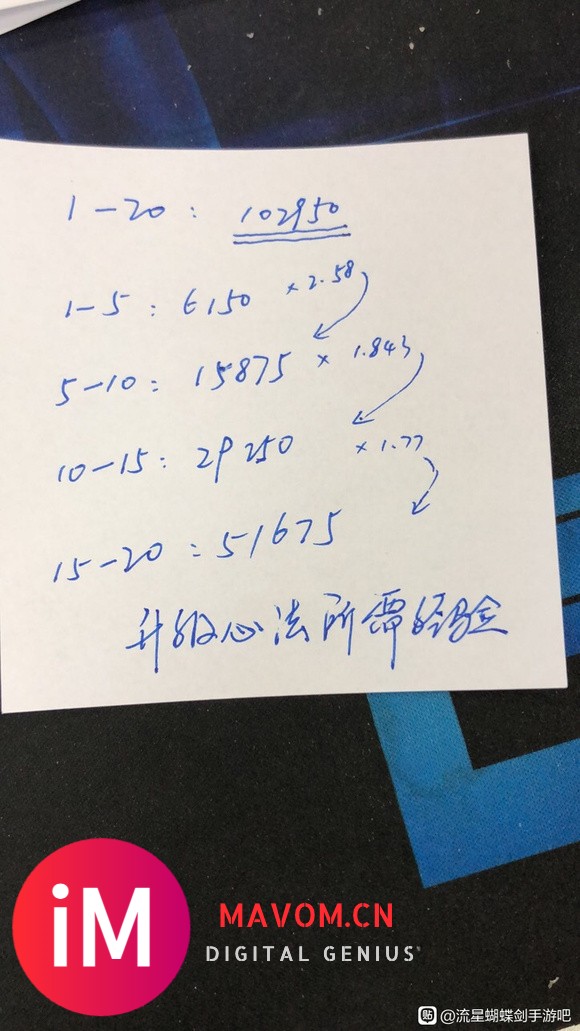 1-20: 102950
1-5: 6150 ×2.58
5-10: 15875 ×1.843
10-15: 29250 ×1.77
15-20: 51675
升级心法所需经验
iM
MAVOM.CN
DIGITAL GENIUS
贴 @流星蝴蝶剑手游吧